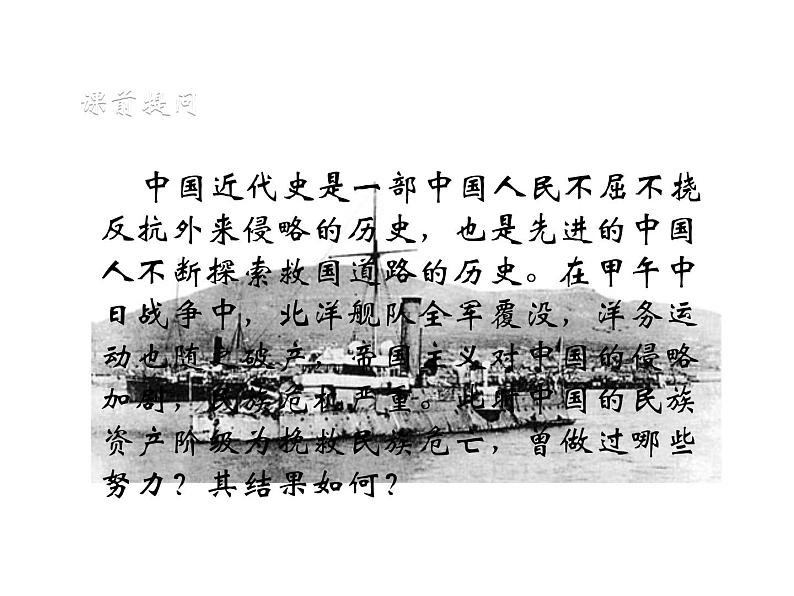 课前提问
中国近代史是一部中国人民不屈不挠
反抗外来侵略的历史，也是先进的中国
人不断探索救国道路的历史。在甲午中
日战争中，北洋舰队全军覆没，洋务运
动也随之破产，帝国主义对中国的侵略
加剧，民族危机严重。此时中国的民族
资产阶级为挽救民族危亡，曾做过哪些
努力？其结果如何？